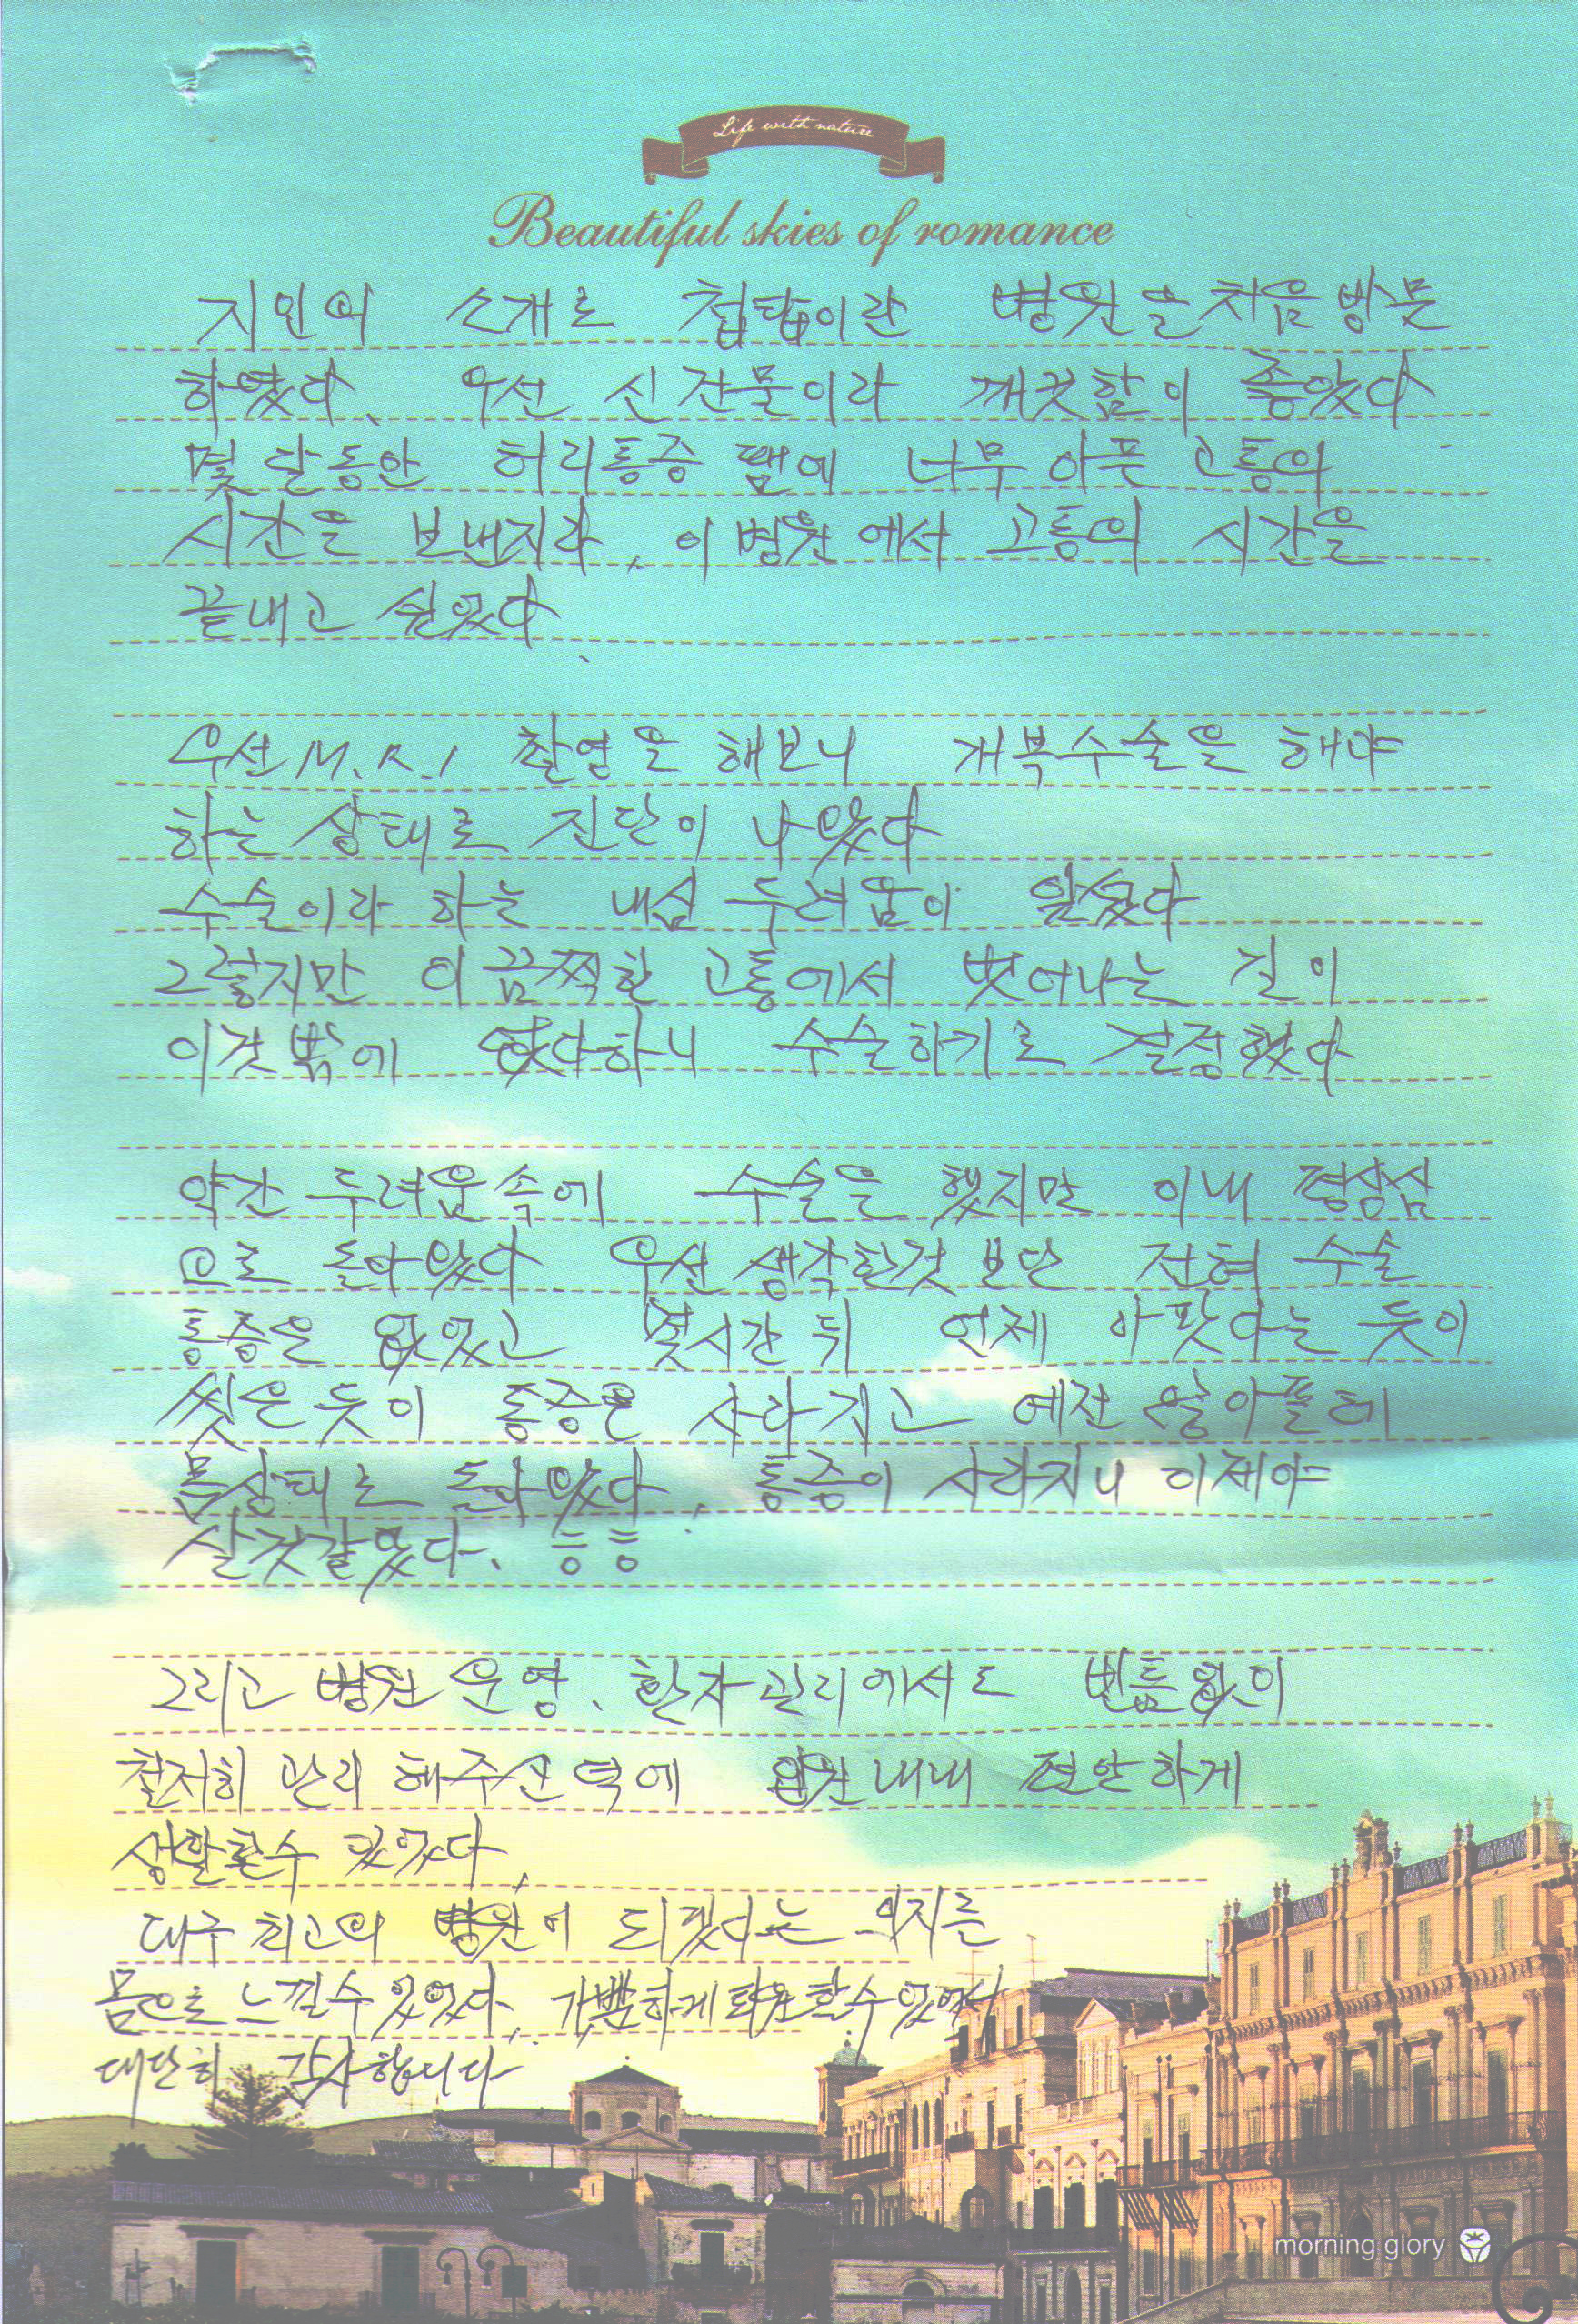 Life with nature
Beautiful skies of romance
지인의 소개로 첨탑이란 병원을 처음 방문
하였다. 우선 신 건물이라 깨끗함이 좋았다.
몇 달동안 허리통증 땜에 너무 아픈 고통의
시간을 보낸지라, 이 병원에서 고통의 시간을
끝내고 싶었다.
우선 M.R.I 촬영을 해보니 개복수술을 해야
하는 상태로 진단이 나왔다
수술이라 하는 내심 두려움이 앞섰다
그렇지만 이 끔찍한 고통에서 벗어나는 길이
이것 밖에 없다하니 수술하기로 결정했다
약간 두려움 속에 수술을 했지만 이내 평상심
으로 돌아왔다. 우선 생각한것 보단 전혀 수술
통증은 없었고 몇시간 뒤 언제 아팟다는 듯이
씻은듯이 통증은 사라지고 예전 않아플때
몸상태로 돌아왔다. 통증이 사라지니 이제야
살것같았다. ㅎㅎ
그리고 병원 운영. 환자관리에서도 빈틈없이
철저히 관리 해주신 덕에 입원내내 편안하게
생활할수 있었다.
대구 최고의 병원이 되겠다는 의지를
몸으로 느낄수 있었다. 가뿐하게 퇴원할수있어서
대단히 감사합니다
morning glory